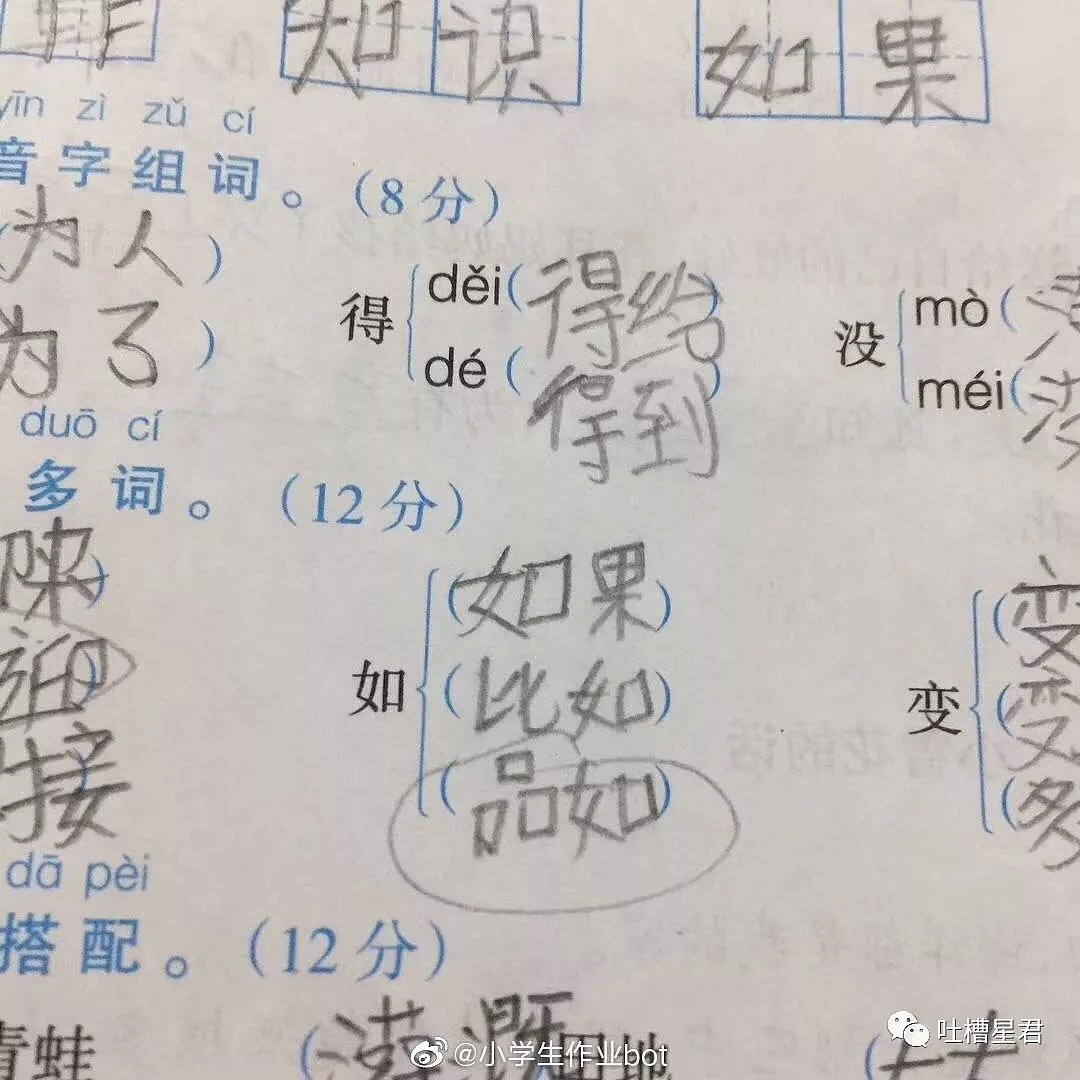 知识 如果
yīn zì zǔ cí
音字组词。(8分)
(为人)
为了)
得
děi(得给)
dé(得到)
没
mò(
méi(没
duō cí
多词。(12分)
如
(如果)
(比如)
(品如)
变
(变
(变
(多
接
dā pèi
搭配。(12分)
青蛙
田地
@小学生作业bot
吐槽星君